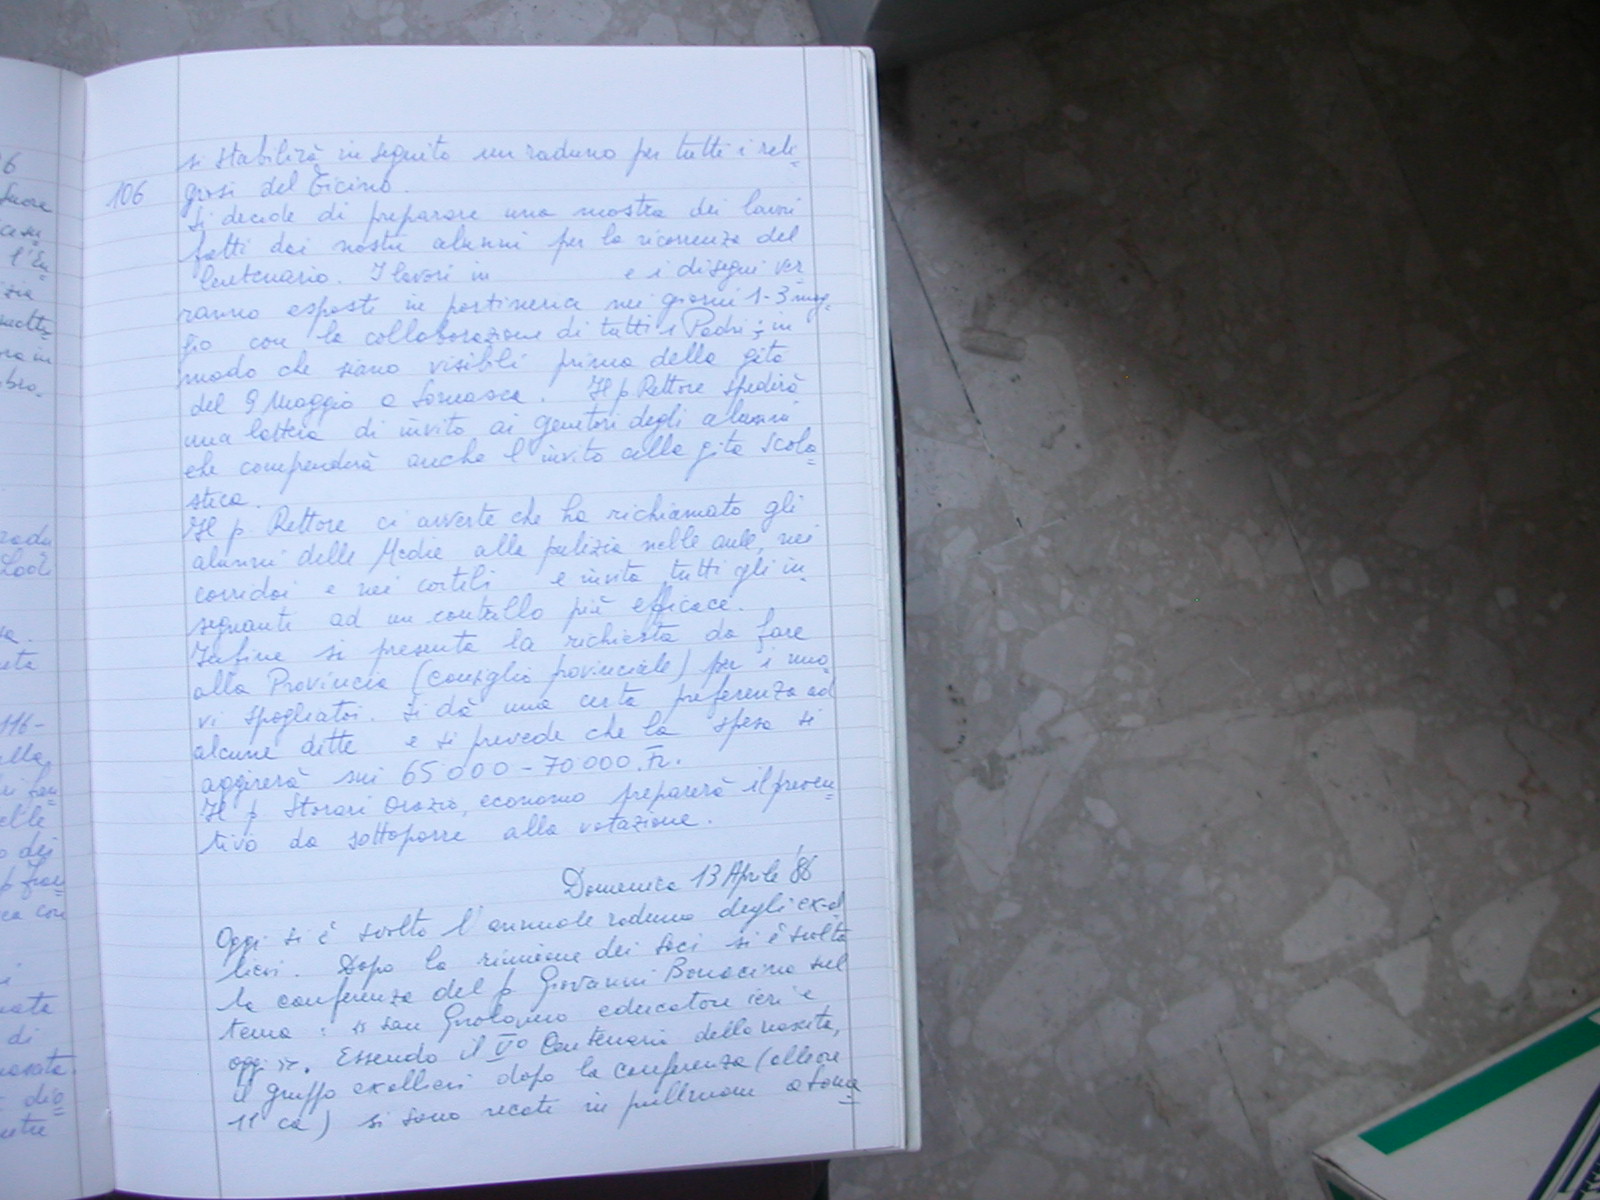 106
si stabilirà in seguito un raduno per tutti i reli=
giosi del Ticino.
Si decide di preparare una mostra dei lavori
fatti dai nostri alunni per la ricorrenza del
Centenario. I lavori in e i disegni ver
ranno esposti in portineria nei giorni 1-3 mag=
gio con la collaborazione di tutti i Padri; in
modo che siano visibili prima della gita
del 9 Maggio a Somasca. Il p. Rettore spedirà
una lettera di invito ai genitori degli alunni
che comprenderà anche l'invito alla gita scola=
stica.
Il p. Rettore ci avverte che ha richiamato gli
alunni delle Medie alla pulizia nelle aule, nei
corridoi e nei cortili e invita tutti gli in=
segnanti ad un controllo più efficace.
Infine si presenta la richiesta da fare
alla Provincia (consiglio provinciale) per i nuo=
vi spogliatoi. Si dà una certa preferenza ad
alcune ditte e si prevede che la spesa si
aggirerà sui 65000-70000.Fr.
Il p. Storari Orazio, economo preparerà il preven=
tivo da sottoporre alla votazione.
Domenica 13 Aprile '86
Oggi si è svolto l'annuale raduno degli ex-al
lievi. Dopo la riunione dei soci si è svolta
la conferenza del p. Giovanni Bonacina sul
tema: « San Girolamo educatore ieri e
oggi ». Essendo il V° Centenario della nascita,
il gruppo exallievi dopo la conferenza (alle ore
11 ca) si sono recati in pullman a Soma=